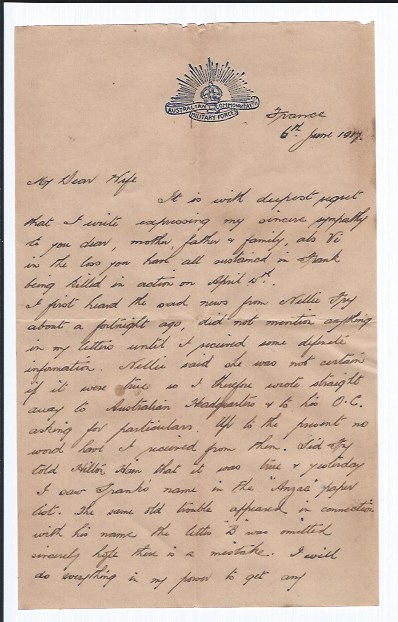 AUSTRALIAN COMMONWEALTH
MILITARY FORCES
France
6th June 1917.
My Dear Wife
It is with deepest regret
that I write expressing my sincere sympathy
to you dear, mother, father & family, also Vi
in the loss you have all sustained in Frank
being killed in action on April 5th.
I first heard the sad news from Nellie Fry
about a fortnight ago, did not mention anything
in my letters until I recieved some definite
information. Nellie said she was not certain
if it were true so I therefore wrote straight
away to Australian Headquarters & to his O.C.
asking for particulars. Up to the present no
word have I recieved from them. Sid Fry
told Hilton that it was true & yesterday
I saw Frank's name in the "Anzac" paper
list. The same old trouble appeared in connection
with his name the letter "B" was omitted
sincerely hope there is a mistake. I will
do everything in my power to get any